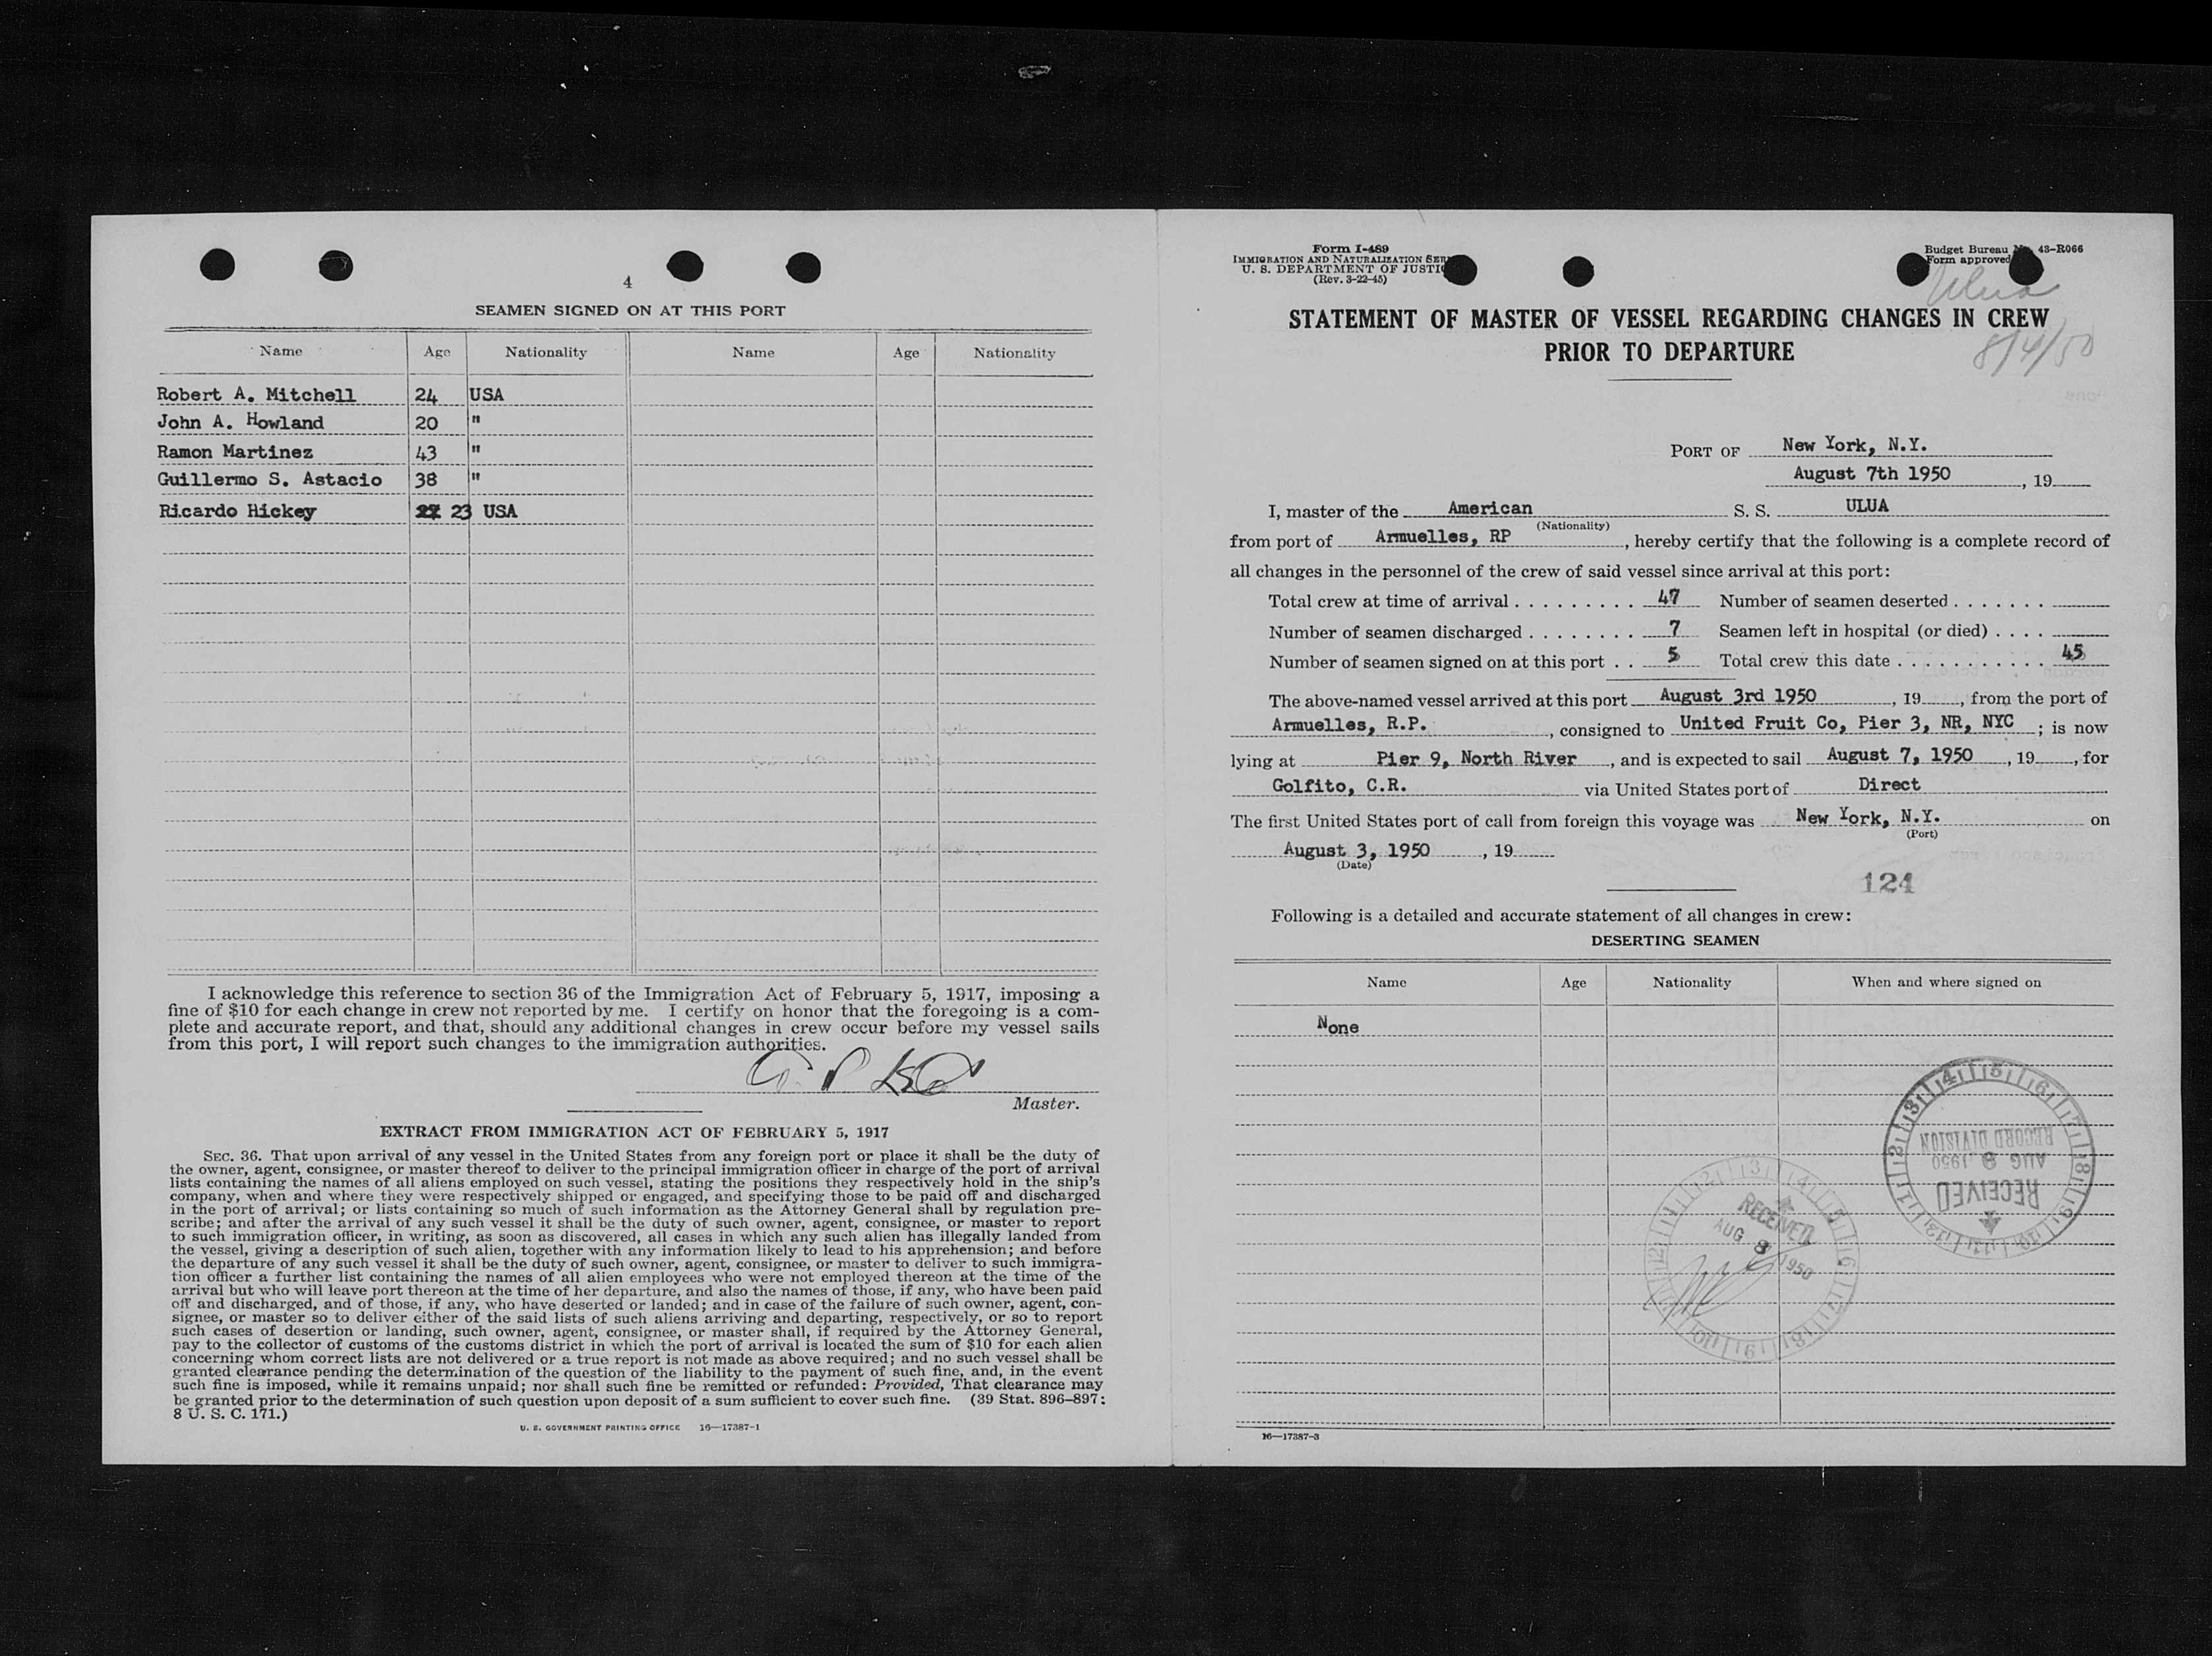 4
SEAMEN SIGNED ON AT THIS PORT
Name Age Nationality Name Age Nationality
Robert A. Mitchell 24 USA
John A. Howland 20 "
Ramon Martinez 43 "
Guillermo S. Astacio 38 "
Ricardo Hickey 23 USA
I acknowledge this reference to section 36 of the Immigration Act of February 5, 1917, imposing a
fine of $10 for each change in crew not reported by me. I certify on honor that the foregoing is a com-
plete and accurate report, and that, should any additional changes in crew occur before my vessel sails
from this port, I will report such changes to the immigration authorities.
Master.
EXTRACT FROM IMMIGRATION ACT OF FEBRUARY 5, 1917
SEC. 36. That upon arrival of any vessel in the United States from any foreign port or place it shall be the duty of
the owner, agent, consignee, or master thereof to deliver to the principal immigration officer in charge of the port of arrival
lists containing the names of all aliens employed on such vessel, stating the positions they respectively hold in the ship's
company, when and where they were respectively shipped or engaged, and specifying those to be paid off and discharged
in the port of arrival; or lists containing so much of such information as the Attorney General shall by regulation pre-
scribe; and after the arrival of any such vessel it shall be the duty of such owner, agent, consignee, or master to report
to such immigration officer, in writing, as soon as discovered, all cases in which any such alien has illegally landed from
the vessel, giving a description of such alien, together with any information likely to lead to his apprehension; and before
the departure of any such vessel it shall be the duty of such owner, agent, consignee, or master to deliver to such immigra-
tion officer a further list containing the names of all alien employees who were not employed thereon at the time of the
arrival but who will leave port thereon at the time of her departure, and also the names of those, if any, who have been paid
off and discharged, and of those, if any, who have deserted or landed; and in case of the failure of such owner, agent, con-
signee, or master so to deliver either of the said lists of such aliens arriving and departing, respectively, or so to report
such cases of desertion or landing, such owner, agent, consignee, or master shall, if required by the Attorney General,
pay to the collector of customs of the customs district in which the port of arrival is located the sum of $10 for each alien
concerning whom correct lists are not delivered or a true report is not made as above required; and no such vessel shall be
granted clearance pending the determination of the question of the liability to the payment of such fine, and, in the event
such fine is imposed, while it remains unpaid; nor shall such fine be remitted or refunded: Provided, That clearance may
be granted prior to the determination of such question upon deposit of a sum sufficient to cover such fine. (39 Stat. 896–897;
8 U. S. C. 171.)
U. S. GOVERNMENT PRINTING OFFICE 16—17387-1
Form I-489
IMMIGRATION AND NATURALIZATION SER
U. S. DEPARTMENT OF JUSTIC
(Rev. 3-22-45)
Budget Bureau No. 43-R066
Form approved
Ulua
8/4/50
STATEMENT OF MASTER OF VESSEL REGARDING CHANGES IN CREW
PRIOR TO DEPARTURE
PORT OF New York, N.Y.
August 7th 1950, 19
I, master of the American S. S. ULUA
(Nationality)
from port of Armuelles, RP, hereby certify that the following is a complete record of
all changes in the personnel of the crew of said vessel since arrival at this port:
Total crew at time of arrival . . . . . . . . . 47 Number of seamen deserted . . . . . . .
Number of seamen discharged . . . . . . . . 7 Seamen left in hospital (or died) . . . .
Number of seamen signed on at this port . . 5 Total crew this date . . . . . . . . . . . 45
The above-named vessel arrived at this port August 3rd 1950, 19, from the port of
Armuelles, R.P., consigned to United Fruit Co, Pier 3, NR, NYC ; is now
lying at Pier 9, North River, and is expected to sail August 7, 1950, 19, for
Golfito, C.R. via United States port of Direct
The first United States port of call from foreign this voyage was New York, N.Y. on
(Port)
August 3, 1950, 19
(Date)
124
Following is a detailed and accurate statement of all changes in crew:
DESERTING SEAMEN
Name Age Nationality When and where signed on
None
RECORD DIVISION
AUG 8 1950
RECEIVED
RECEIVED
AUG 8 1950
16—17387-3